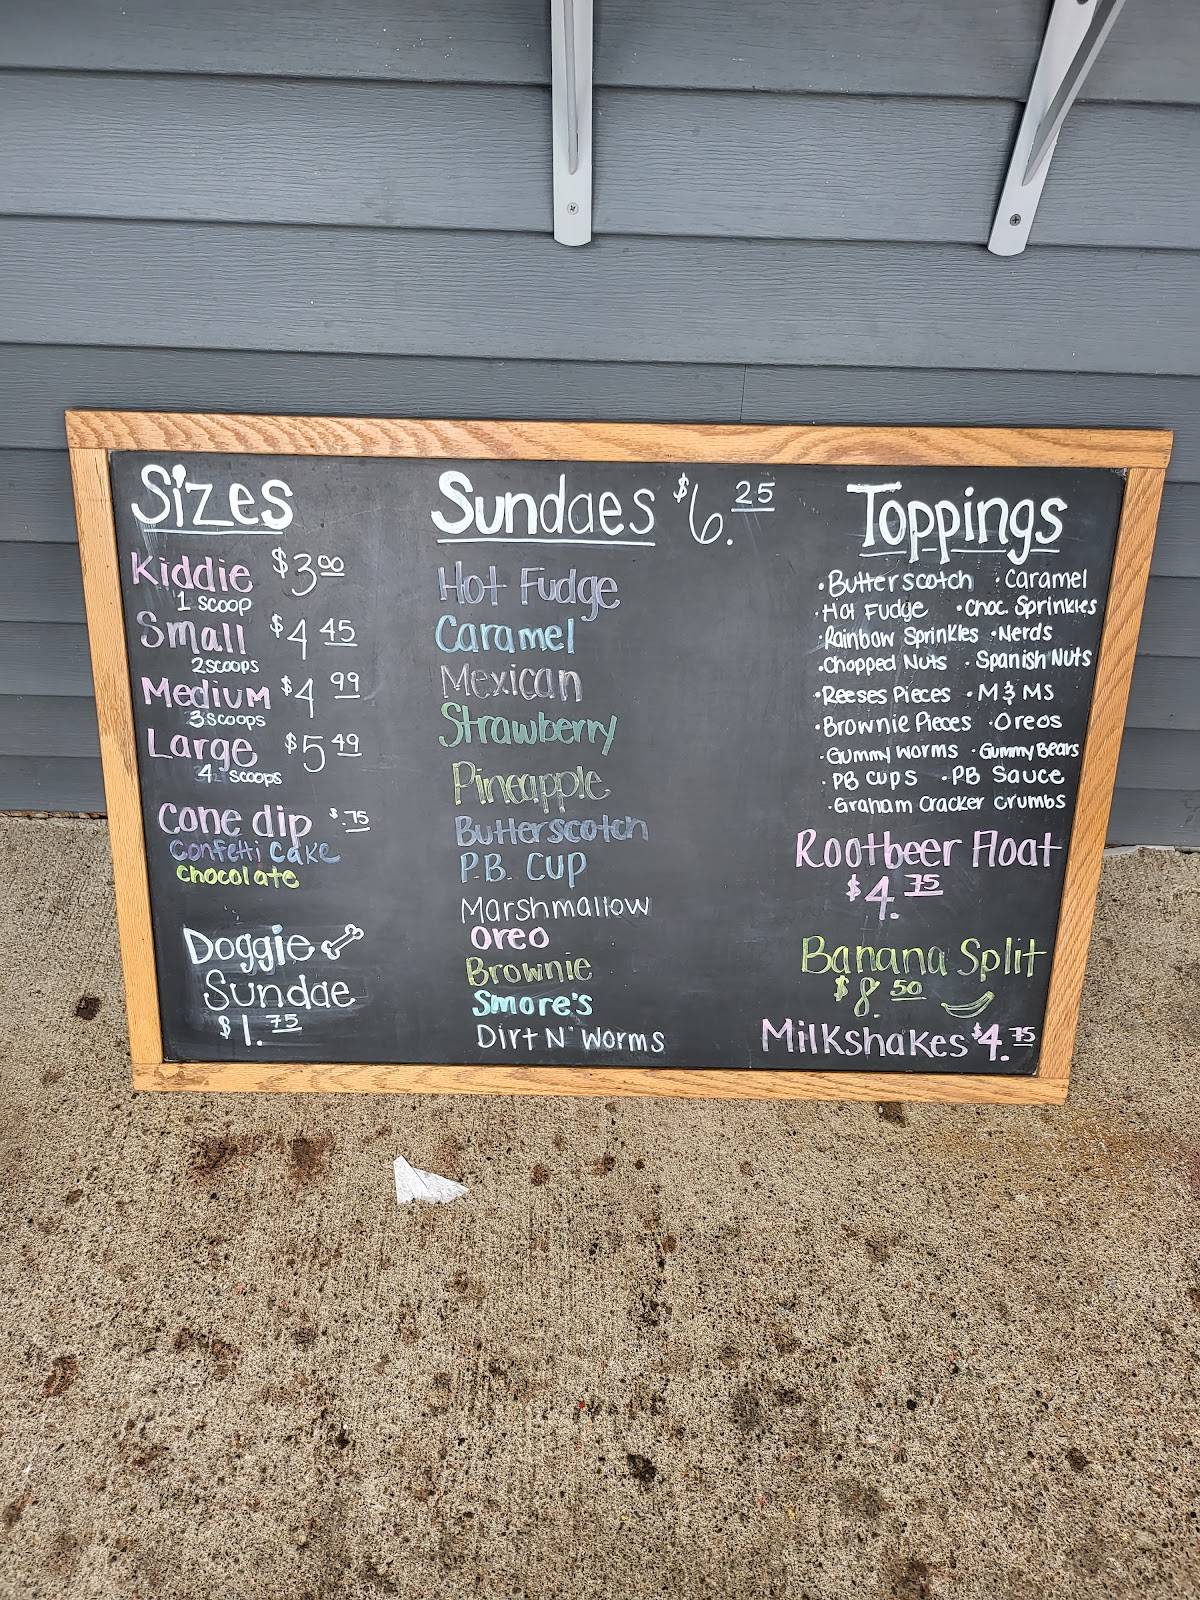 Sizes
Kiddie $3.00
1 scoop
Small $4 45
2 scoops
Medium $4 99
3 scoops
Large $5 49
4 scoops
Cone dip $.75
Confetti Cake
Chocolate
Doggie
Sundae
$1.75
Sundaes $6.25
Hot Fudge
Caramel
Mexican
Strawberry
Pineapple
Butterscotch
P.B. Cup
Marshmallow
Oreo
Brownie
Smore's
Dirt N' Worms
Toppings
• Butterscotch • Caramel
• Hot Fudge • Choc. Sprinkles
• Rainbow Sprinkles • Nerds
• Chopped Nuts • Spanish Nuts
• Reeses Pieces • M & Ms
• Brownie Pieces • Oreos
• Gummy Worms • Gummy Bears
• PB Cups • PB Sauce
• Graham Cracker Crumbs
Rootbeer Float
$4.75
Banana Split
$8.50
Milkshakes $4.75